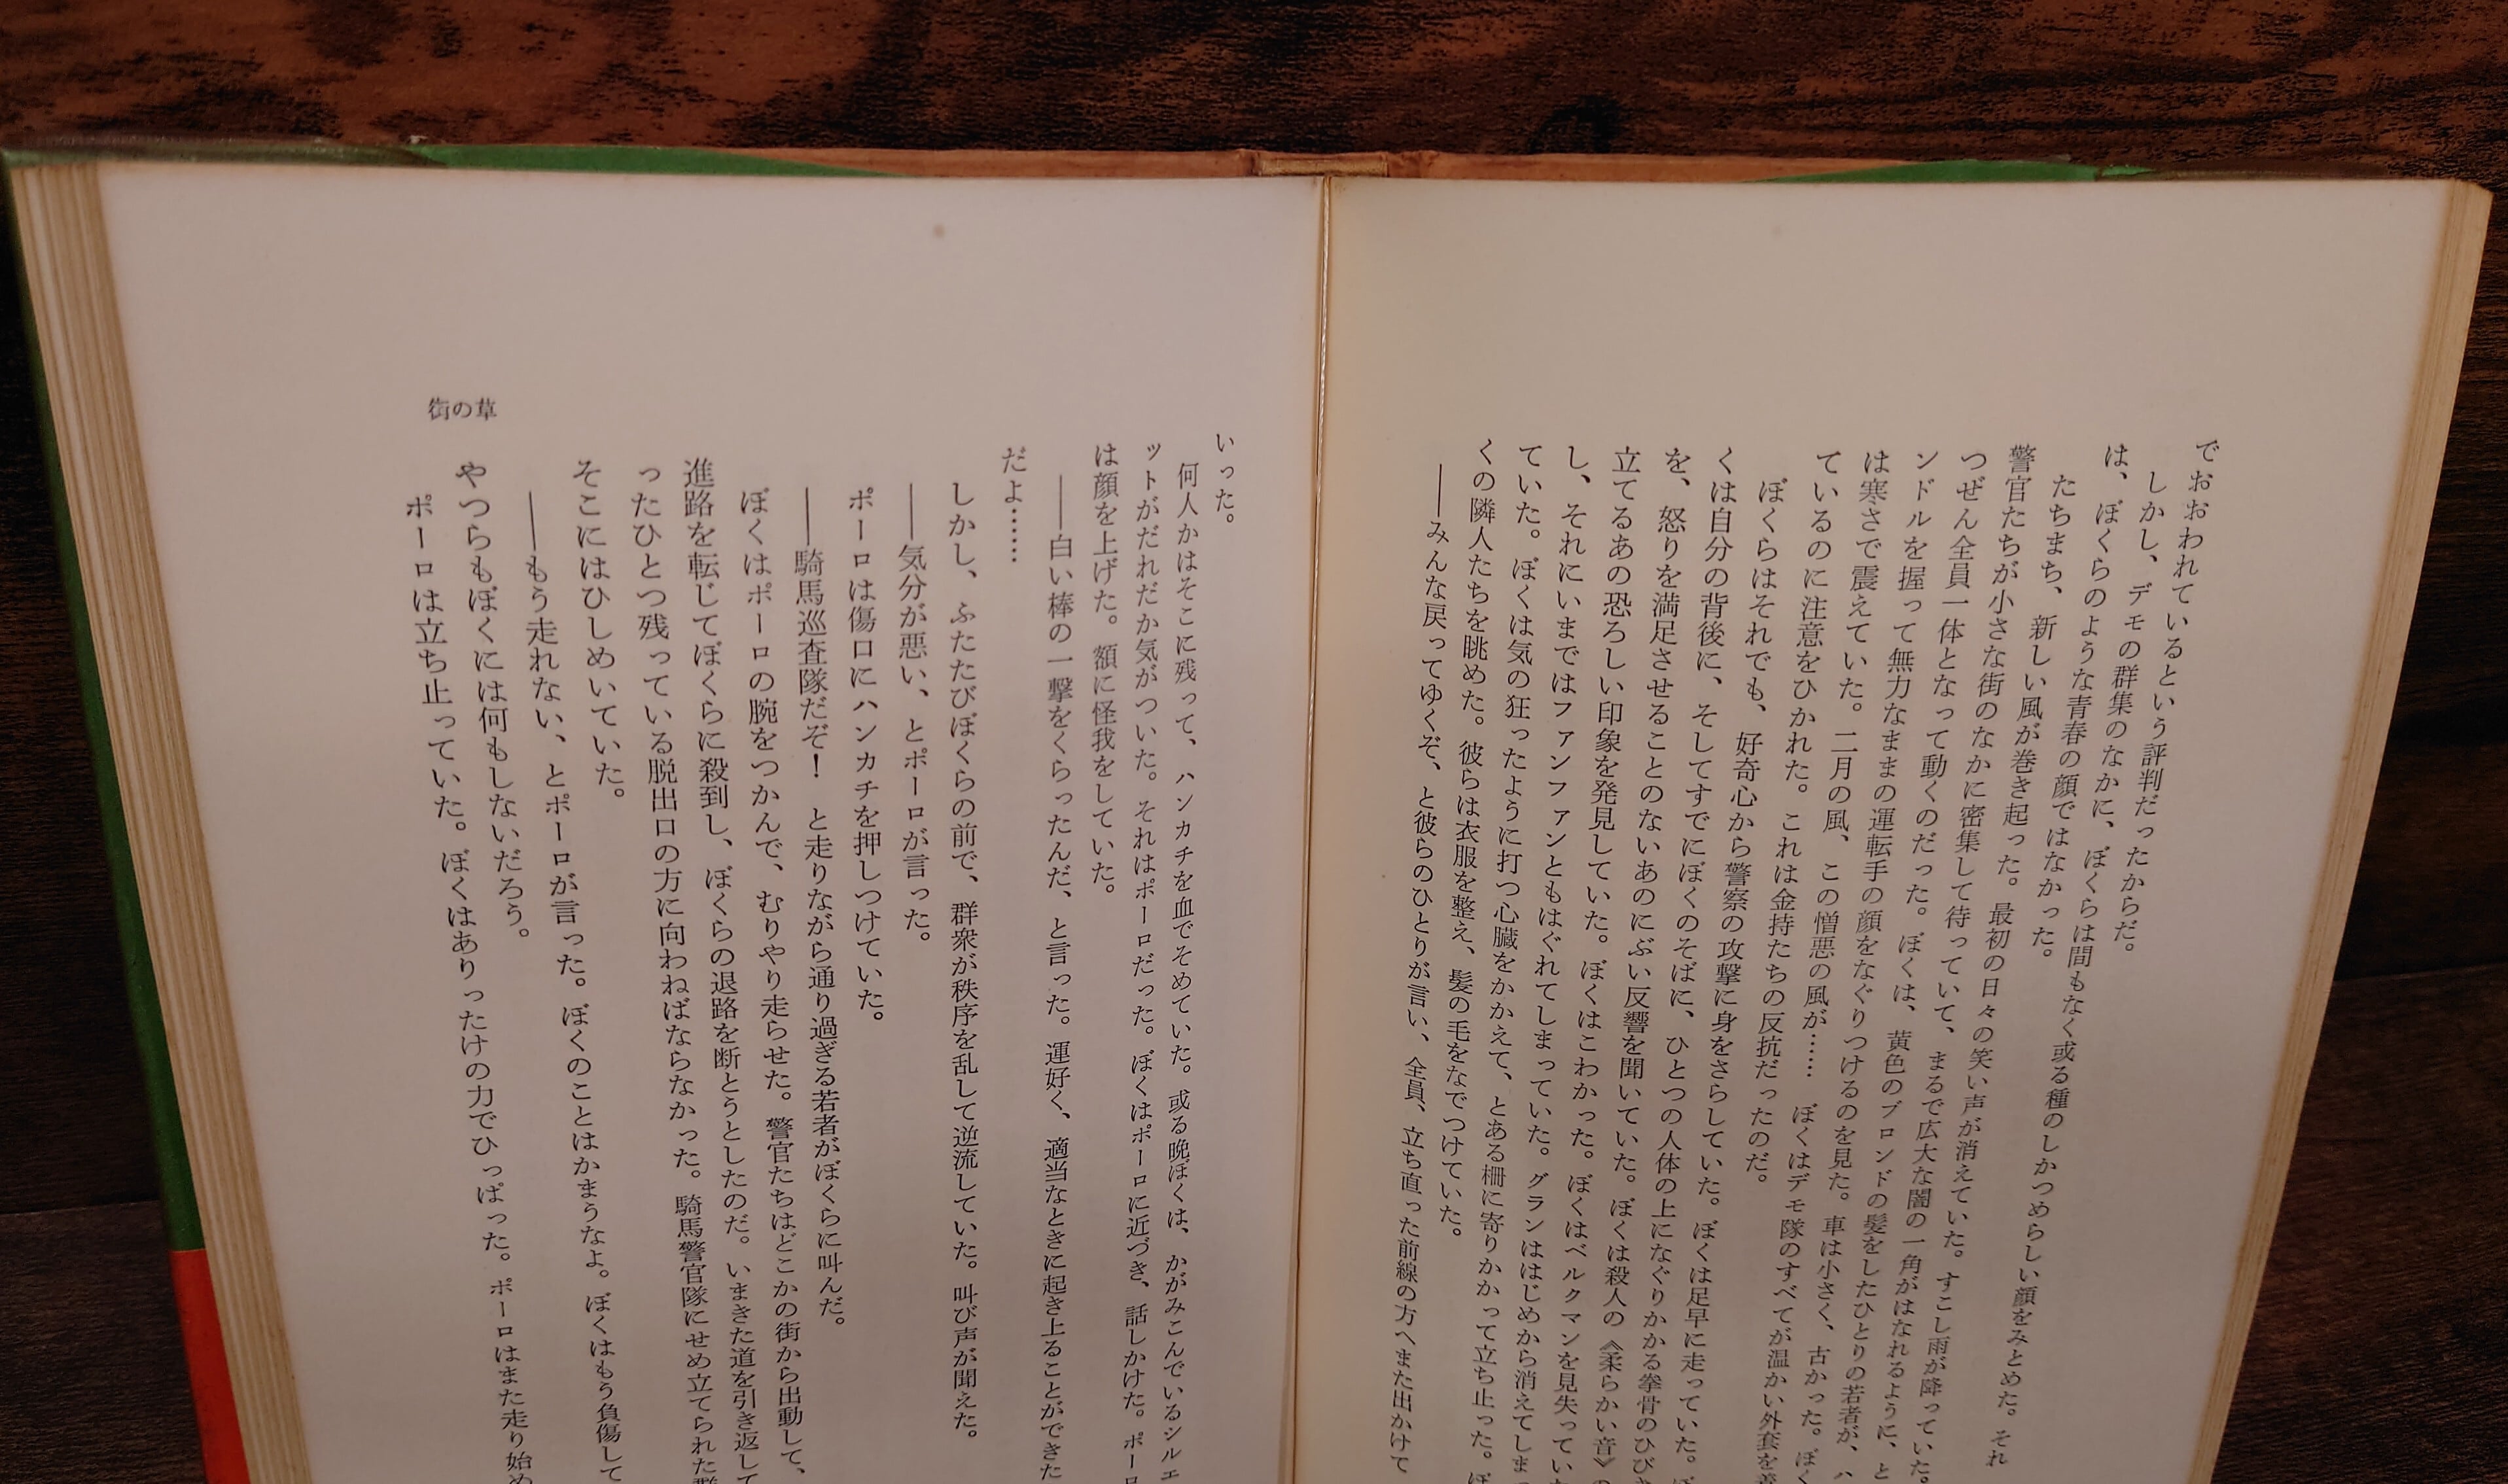 でおおわれているという評判だったからだ。
しかし、デモの群集のなかに、ぼくらは間もなく或る種のしかつめらしい顔をみとめた。それ
は、ぼくらのような青春の顔ではなかった。
たちまち、新しい風が巻き起った。最初の日々の笑い声が消えていた。すこし雨が降っていた。
警官たちが小さな街のなかに密集して待っていて、まるで広大な闇の一角がはなれるように、と
つぜん全員一体となって動くのだった。ぼくは、黄色のブロンドの髪をしたひとりの若者が、ハ
ンドルを握って無力なままの運転手の顔をなぐりつけるのを見た。車は小さく、古かった。ぼく
は寒さで震えていた。二月の風、この憎悪の風が…… ぼくはデモ隊のすべてが温かい外套を着
ているのに注意をひかれた。これは金持たちの反抗だったのだ。
ぼくらはそれでも、好奇心から警察の攻撃に身をさらしていた。ぼくは足早に走っていた。ぼ
くは自分の背後に、そしてすでにぼくのそばに、ひとつの人体の上になぐりかかる拳骨のひびき
を、怒りを満足させることのないあのにぶい反響を聞いていた。ぼくは殺人の《柔らかい音》の
立てるあの恐ろしい印象を発見していた。ぼくはこわかった。ぼくはベルクマンを見失ってい
し、それにいまではファンファンともはぐれてしまっていた。グランははじめから消えてしまっ
ていた。ぼくは気の狂ったように打つ心臓をかかえて、とある柵に寄りかかって立ち止った。ぼ
くの隣人たちを眺めた。彼らは衣服を整え、髪の毛をなでつけていた。
――みんな戻ってゆくぞ、と彼らのひとりが言い、全員、立ち直った前線の方へまた出かけて
いった。
何人かはそこに残って、ハンカチを血でそめていた。或る晩ぼくは、かがみこんでいるシルエ
ットがだれだか気がついた。それはポーロだった。ぼくはポーロに近づき、話しかけた。ポーロ
は顔を上げた。額に怪我をしていた。
――白い棒の一撃をくらったんだ、と言った。運好く、適当なときに起き上ることができた
だよ……
しかし、ふたたびぼくらの前で、群衆が秩序を乱して逆流していた。叫び声が聞えた。
――気分が悪い、とポーロが言った。
ポーロは傷口にハンカチを押しつけていた。
――騎馬巡査隊だぞ！ と走りながら通り過ぎる若者がぼくらに叫んだ。
ぼくはポーロの腕をつかんで、むりやり走らせた。警官たちはどこかの街から出動して、
進路を転じてぼくらに殺到し、ぼくらの退路を断とうとしたのだ。いまきた道を引き返して
ったひとつ残っている脱出口の方に向わねばならなかった。騎馬警官隊にせめ立てられた群
そこにはひしめいていた。
――もう走れない、とポーロが言った。ぼくのことはかまうなよ。ぼくはもう負傷して
やつらもぼくには何もしないだろう。
ポーロは立ち止っていた。ぼくはありったけの力でひっぱった。ポーロはまた走り始め
街の草